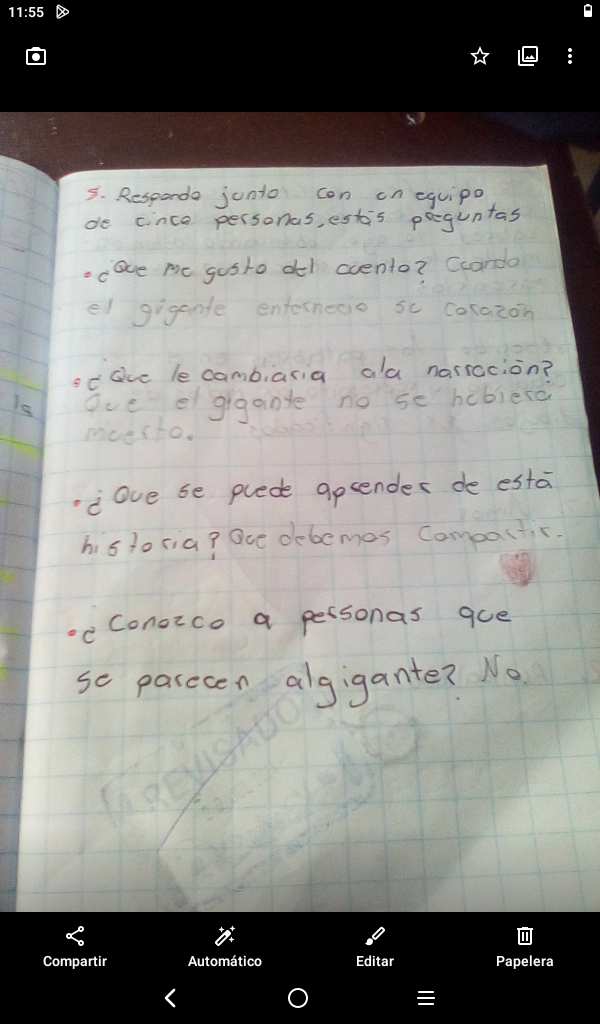 11:55
5. Responde junto con un equipo
de cinco personas, estás preguntas
• ¿Que me gusto del cuento? Cuando
el gigante enternecio su corazón
• ¿Que le cambiaria ala narración?
Que el gigante no se hubiera
muerto.
• ¿Que se puede aprender de está
historia? Que debemos compartir.
• ¿Conozco a personas que
se parecen algigante? No.
REVISADO
Compartir
Automático
Editar
Papelera